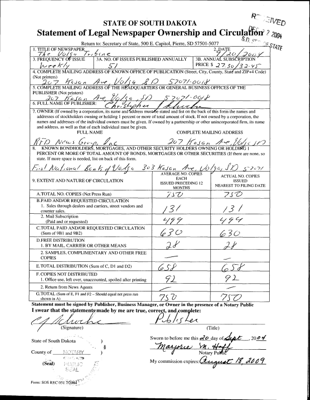 STATE OF SOUTH DAKOTA
Statement of Legal Newspaper Ownership and Circulation
Return to: Secretary of State, 500 E. Capitol, Pierre, SD 57501-5077
1. TITLE OF NEWSPAPER
2. DATE
The Volga Tribune
9/20/2004
3. FREQUENCY OF ISSUE
3A. NO. OF ISSUES PUBLISHED ANNUALLY
3B. ANNUAL SUBSCRIPTION
Weekly
51
PRICE $
4. COMPLETE MAILING ADDRESS OF KNOWN OFFICE OF PUBLICATION (Street, City, County, State and ZIP+4 Code)
(Not printers)
207 Kasan Ave Volga SD 57071
5. COMPLETE MAILING ADDRESS OF THE HEADQUARTERS OR GENERAL BUSINESS OFFICES OF THE
PUBLISHER (Not printers)
207 Kasan Ave Volga, SD
6. FULL NAME OF PUBLISHER:
Christopher
7. OWNER (If owned by a corporation, its name and address must be stated and list on the back of this form the names and
addresses of stockholders owning or holding 1 percent or more of total amount of stock. If not owned by a corporation, the
names and addresses of the individual owners must be given. If owned by a partnership or other unincorporated firm, its name
and address, as well as that of each individual must be given.
FULL NAME
COMPLETE MAILING ADDRESS
News Group Inc
207 Kasan Ave Volga, SD
8. KNOWN BONDHOLDERS, MORTGAGES, AND OTHER SECURITY HOLDERS OWNING OR HOLDING 1
PERCENT OR MORE OF TOTAL AMOUNT OF BONDS, MORTGAGES OR OTHER SECURITIES (If there are none, so
state. If more space is needed, list on back of this form.
First National Bank of Volga Kasan Ave Volga, SD
9. EXTENT AND NATURE OF CIRCULATION
AVERAGE NO. COPIES
EACH
ISSUED PRECEDING 12
MONTHS
ACTUAL NO. COPIES
ISSUED
NEAREST TO FILING DATE
A. TOTAL NO. COPIES (Net Press Run)
750
750
B. PAID AND/OR REQUESTED CIRCULATION
1. Sales through dealers and carriers, street vendors and
counter sales.
131
131
2. Mail Subscription
(Paid and or requested)
499
499
C. TOTAL PAID AND/OR REQUESTED CIRCULATION
(Sum of 9B1 and 9B2)
630
630
D. FREE DISTRIBUTION
1. BY MAIL, CARRIER OR OTHER MEANS
28
28
2. SAMPLES, COMPLIMENTARY AND OTHER FREE
COPIES
E. TOTAL DISTRIBUTION (Sum of C, D1 and D2)
658
658
F. COPIES NOT DISTRIBUTED
1. Office use, left over, unaccounted, spoiled after printing
92
92
2. Return from News Agents
G. TOTAL (Sum of E, F1 and F2 – Should equal net press run
shown in A)
750
750
Statement must be signed by Publisher, Business Manager, or Owner in the presence of a Notary Public
I swear that the statements made by me are true, correct, and complete:
Publisher
(Signature)
(Title)
State of South Dakota
Sworn to before me this 20 day of Sept 2004
County of
Marjorie M.
Notary Public
(Seal)
My commission expires August 18, 2009